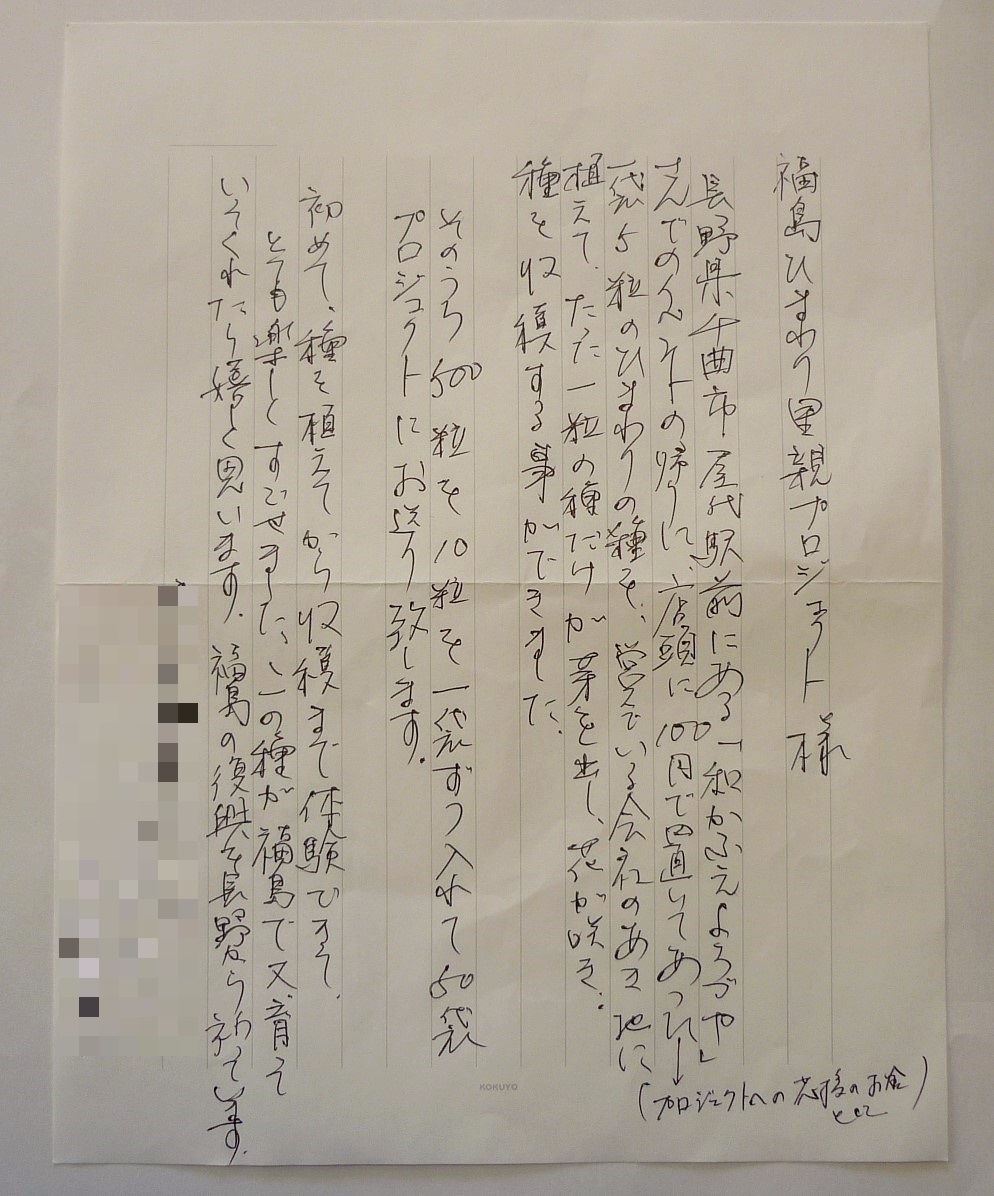 福島ひまわり里親プロジェクト 様
長野県千曲市屋代駅前にある「和かふぇよろづや」
さんでのイベントの帰りに、店頭に100円で置いてあった
(プロジェクトへの支援のお金として)
一袋5粒のひまわりの種を、営んでいる会社のあき地に
植えて、たった一粒の種だけが芽を出し、花が咲き、
種を収穫する事ができました。
そのうち500粒を10粒を一袋ずつ入れて50袋
プロジェクトにお送り致します。
初めて、種を植えてから収穫まで体験できて、
とても楽しくすごせました。この種が福島で又育って
いてくれたら嬉しく思います。福島の復興を長野から祈っています。
KOKUYO